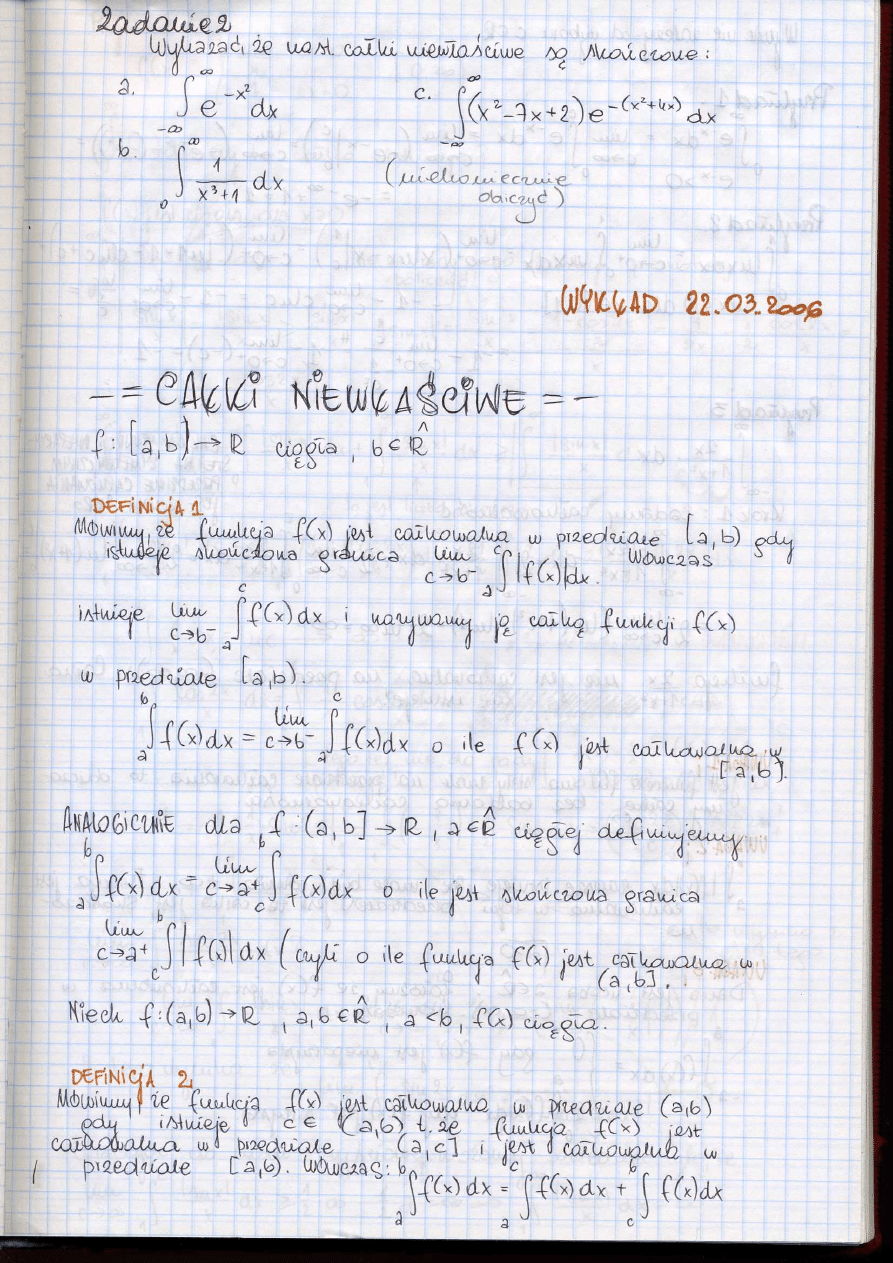 Zadanie 2
Wykazać, że nast całki niewłaściwe są skończone:
a. ∫_{-∞}^{∞} e^{-x²} dx
c. ∫_{-∞}^{∞} (x²-7x+2) e^{-(x²+4x)} dx
b. ∫_{0}^{∞} 1/(x³+1) dx
(niekoniecznie
obliczyć)
WYKŁAD 22.03.2006
-= CAŁKI NIEWŁAŚCIWE =-
f: [a,b) → R ciągła, b ∈ R̂
DEFINICJA 1
Mówimy, że funkcja f(x) jest całkowalna w przedziale [a,b) gdy
istnieje skończona granica lim_{c→b⁻} ∫_{a}^{c} |f(x)|dx. Wówczas
istnieje lim_{c→b⁻} ∫_{a}^{c} f(x)dx i nazywamy ją całką funkcji f(x)
w przedziale [a,b).
∫_{a}^{b} f(x)dx = lim_{c→b⁻} ∫_{a}^{c} f(x)dx o ile f(x) jest całkowalna w
[a,b].
ANALOGICZNIE dla f: (a,b] → R, a ∈ R̂ ciągłej definiujemy
∫_{a}^{b} f(x)dx = lim_{c→a⁺} ∫_{c}^{b} f(x)dx o ile jest skończona granica
lim_{c→a⁺} ∫_{c}^{b} |f(x)|dx (czyli o ile funkcja f(x) jest całkowalna w
(a,b].
Niech f: (a,b) → R, a,b ∈ R̂, a<b, f(x) ciągła.
DEFINICJA 2
Mówimy, że funkcja f(x) jest całkowalna w przedziale (a,b)
gdy istnieje c ∈ (a,b) t. że funkcja f(x) jest
całkowalna w przedziale (a,c] i jest całkowalna w
przedziale [a,b). Wówczas:
∫_{a}^{b} f(x)dx = ∫_{a}^{c} f(x)dx + ∫_{c}^{b} f(x)dx